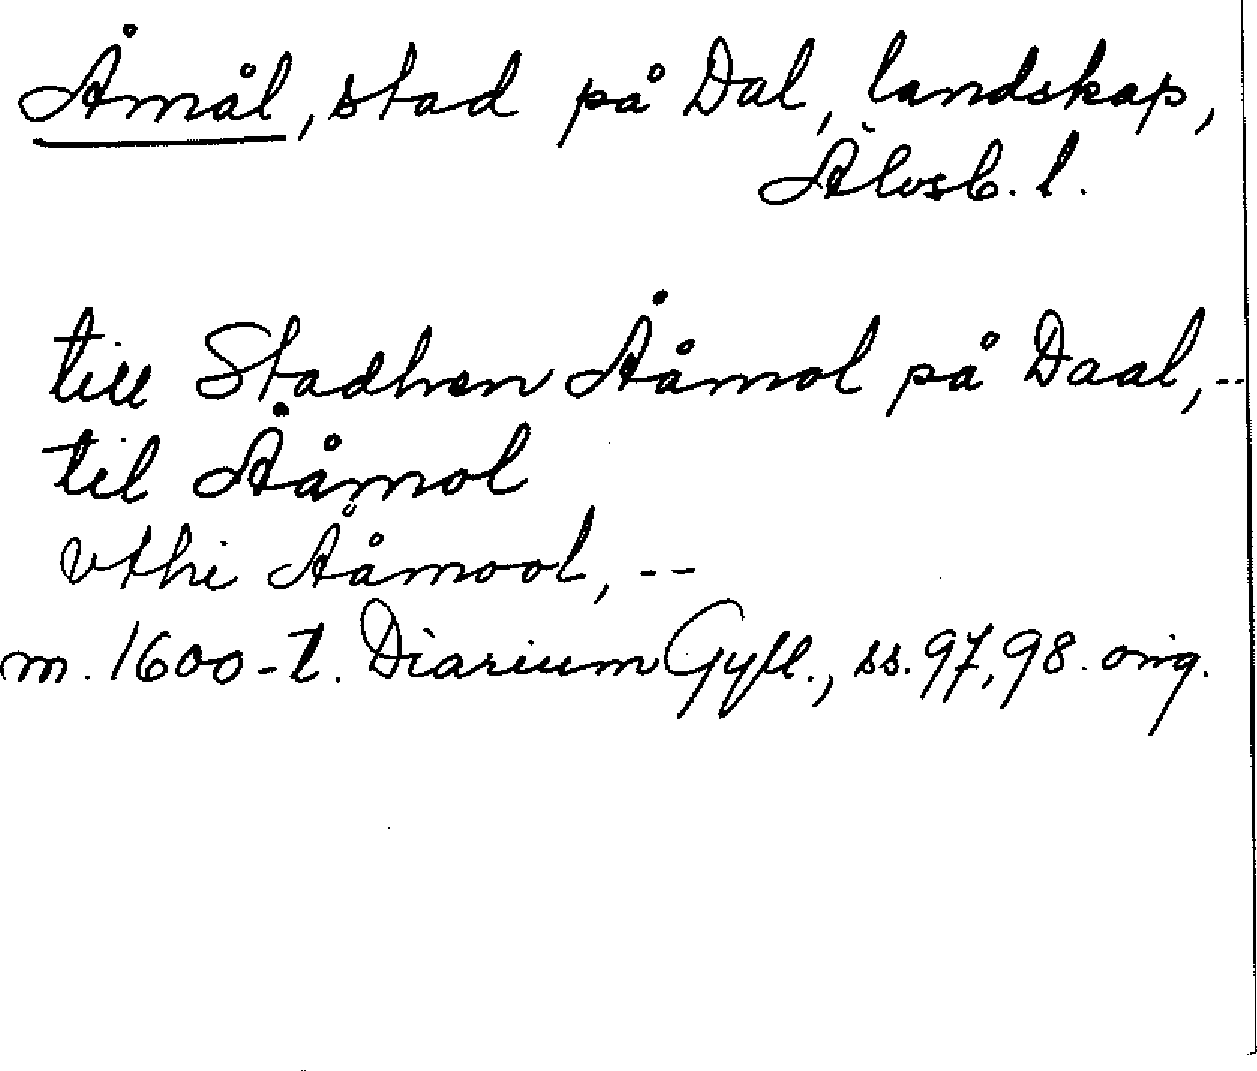 Åmål, stad på Dal, landskap,
Älvsb. l.
till Stadhen Ååmol på Daal,--
til Ååmol
vthi Ååmool, --
m. 1600-t. Diarium Gyll., ss. 97, 98. orig.